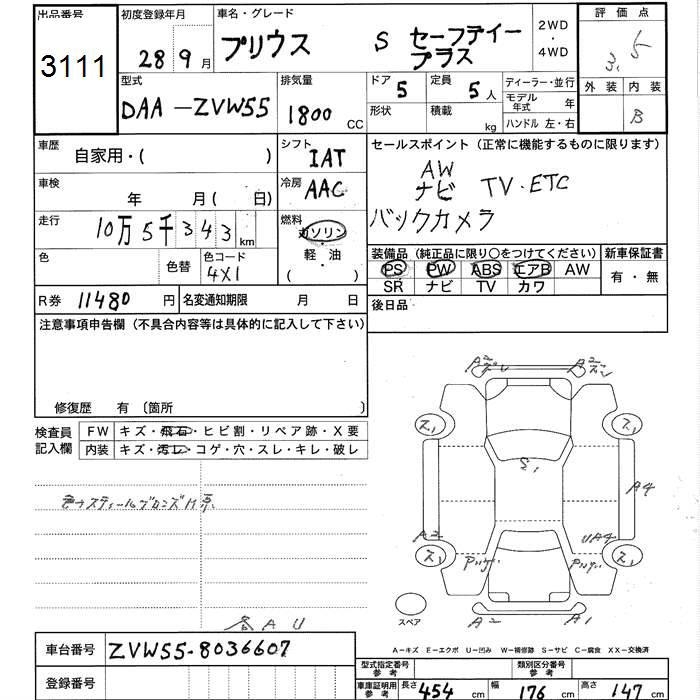 出品番号
3111
初度登録年月
28 9月
車名・グレード
プリウス S セーフティー
プラス
2WD
・
4WD
評価点
3.5
外装 内装
B
型式
DAA-ZVW55
排気量
1800 CC
ドア 5
定員 5人
形状
積載 kg
ディーラー・並行
モデル年式 年
ハンドル 左・右
車歴
自家用・( )
シフト
IAT
車検
年 月( 日)
冷房
AAC
走行
10万5千343 km
燃料
ガソリン
・
軽・油
( )
色
色替
色コード
4X1
R券 11480 円
名変通知期限 月 日
セールスポイント(正常に機能するものに限ります)
AW
ナビ TV・ETC
バックカメラ
装備品(純正品に限り○をつけてください)
PS PW ABS エアB AW
SR ナビ TV カワ
新車保証書
有・無
後日品
注意事項申告欄(不具合内容等は具体的に記入して下さい)
修復歴 有〔箇所 〕
検査員
記入欄
FW キズ・飛石・ヒビ割・リペア跡・X要
内装 キズ・汚レ・コゲ・穴・スレ・キレ・破レ
各AU
A2 A2
ス1 ス1
S1
A4
A2 UA4
ス1 ス1
A2 A1
スペア
A−キズ E−エクボ U−凹み W−補修跡 S−サビ C−腐食 XX−交換済
車台番号 ZVW55-8036607
登録番号
型式指定番号
参考
類別区分番号
参考
車庫証明用
参考
長さ 454 cm 幅 176 cm 高さ 147 cm